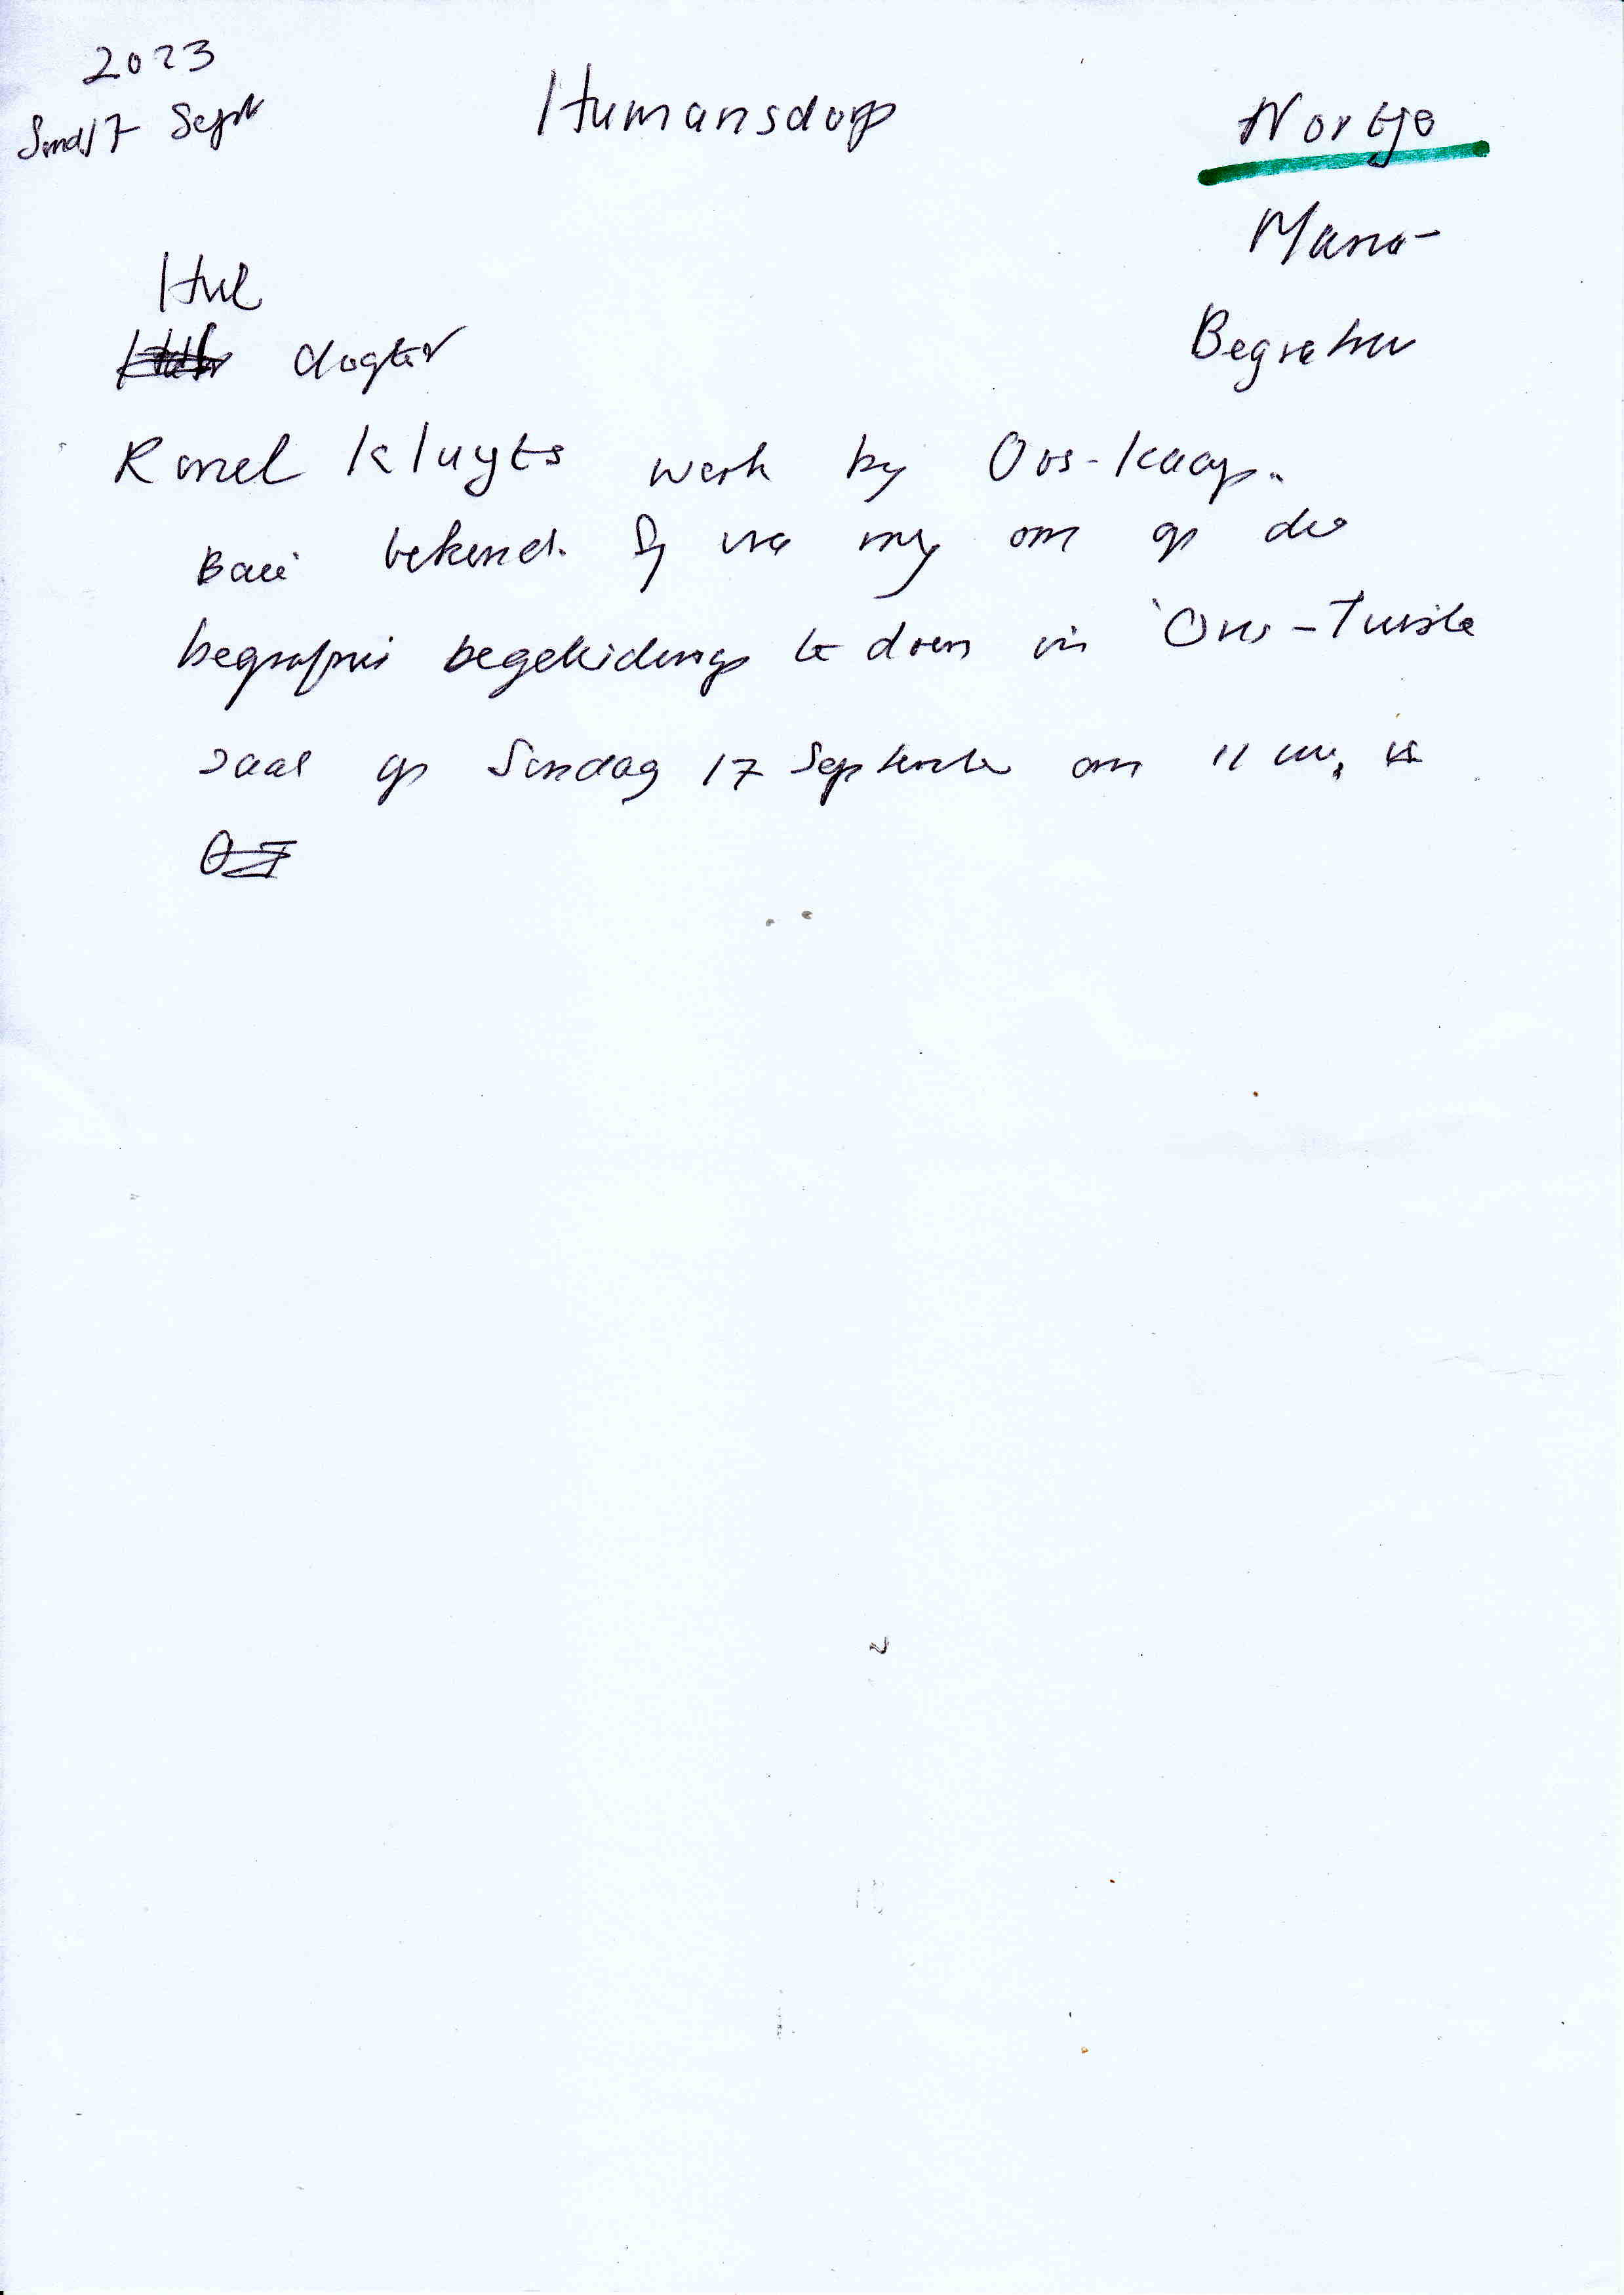 2023
Sond 17 Sept
Humansdorp
Nortje
Begrafnis
Hul
dogter
Ronel Kluyts werk by Oos-Kaap.
Baie bekend. Sy vra my om op die
begrafnis begeleidings te doen in Ons-Tuiste
saal op Sondag 17 September om 11 uur